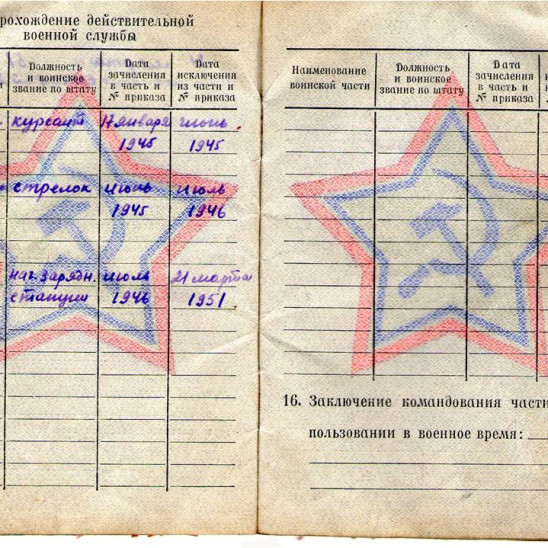 рохождение действительной
военной службы
Должность
и воинское
звание по штату
Дата
зачисления
в часть и
№ приказа
Дата
исключения
из части и
№ приказа
курсант 17 января июнь
1945 1945
стрелок июнь июль
1945 1946
нач. зарядн. июль 21 марта
станции 1946 1951
Наименование
воинской части
Должность
и воинское
звание по штату
Дата
зачисления
в часть и
№ приказа
16. Заключение командования части
пользовании в военное время: